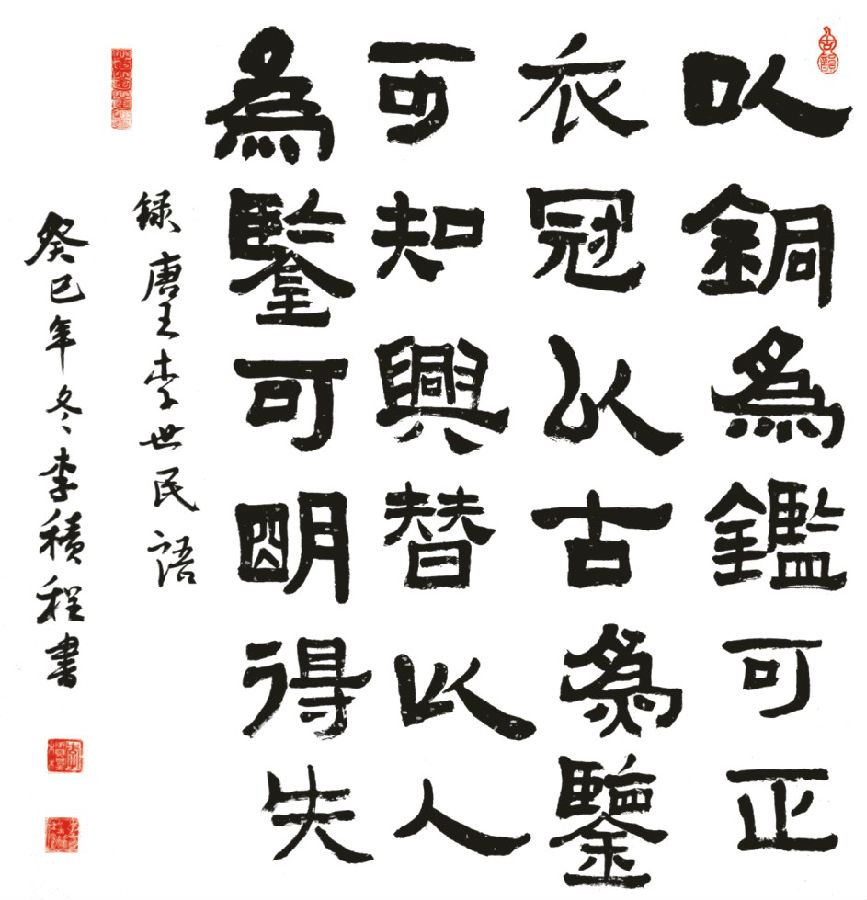 以銅為鑑可正
衣冠以古為鑒
可知興替以人
為鑒可明得失
録唐王李世民語
癸巳年冬李積程書